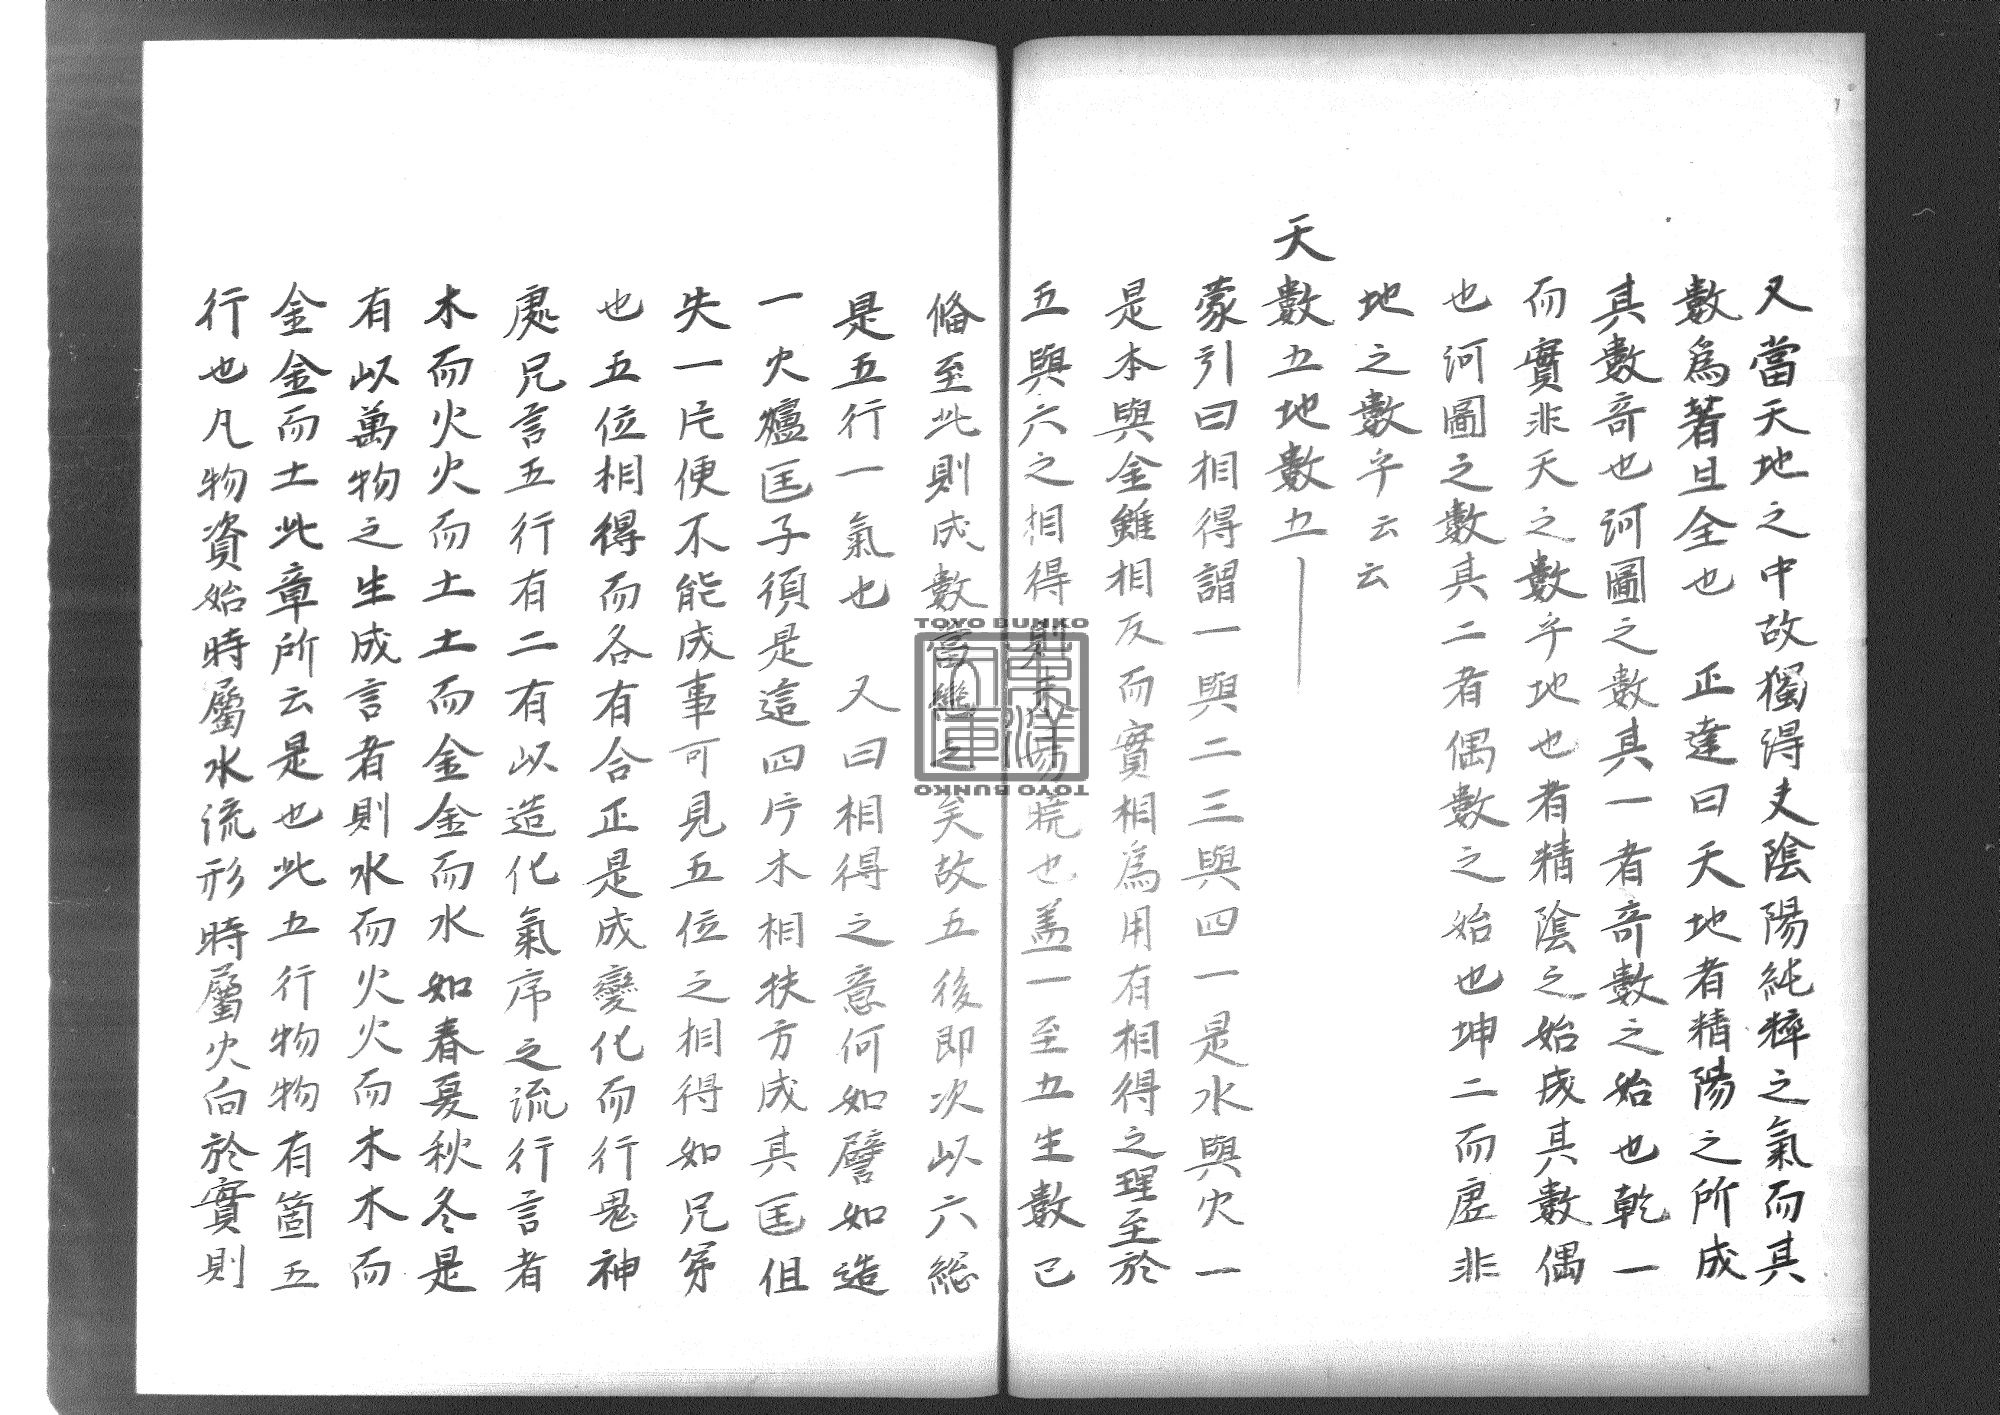 又當天地之中故獨得夫陰陽純粹之氣而其
數爲著且全也　正達曰天地者精陽之所成
其數奇也河圖之數其一者奇數之始也乾一
而實非天之數乎地也者精陰之始成其數偶
也河圖之數其二者偶數之始也坤二而虛非
地之數乎云云
天數五地數五
蒙引曰相得謂一與二三與四一是水與火一
是木與金雖相反而實相爲用有相得之理至於
五與六之相得則未易曉也盖一至五生數已
俻至此則成數當繼之矣故五後即次以六総
是五行一氣也　又曰相得之意何如譬如造
一火爐匡子須是這四片木相扶方成其匡但
失一片便不能成事可見五位之相得如兄弟
也五位相得而各有合正是成變化而行鬼神
處凡言五行有二有以造化氣序之流行言者
木而火火而土土而金金而水如春夏秋冬是
有以萬物之生成言者則水而火火而木木而
金金而土此章所云是也此五行物物有箇五
行也凡物資始時屬水流形時屬火向於實則
TOYO BUNKO
東洋文庫
TOYO BUNKO